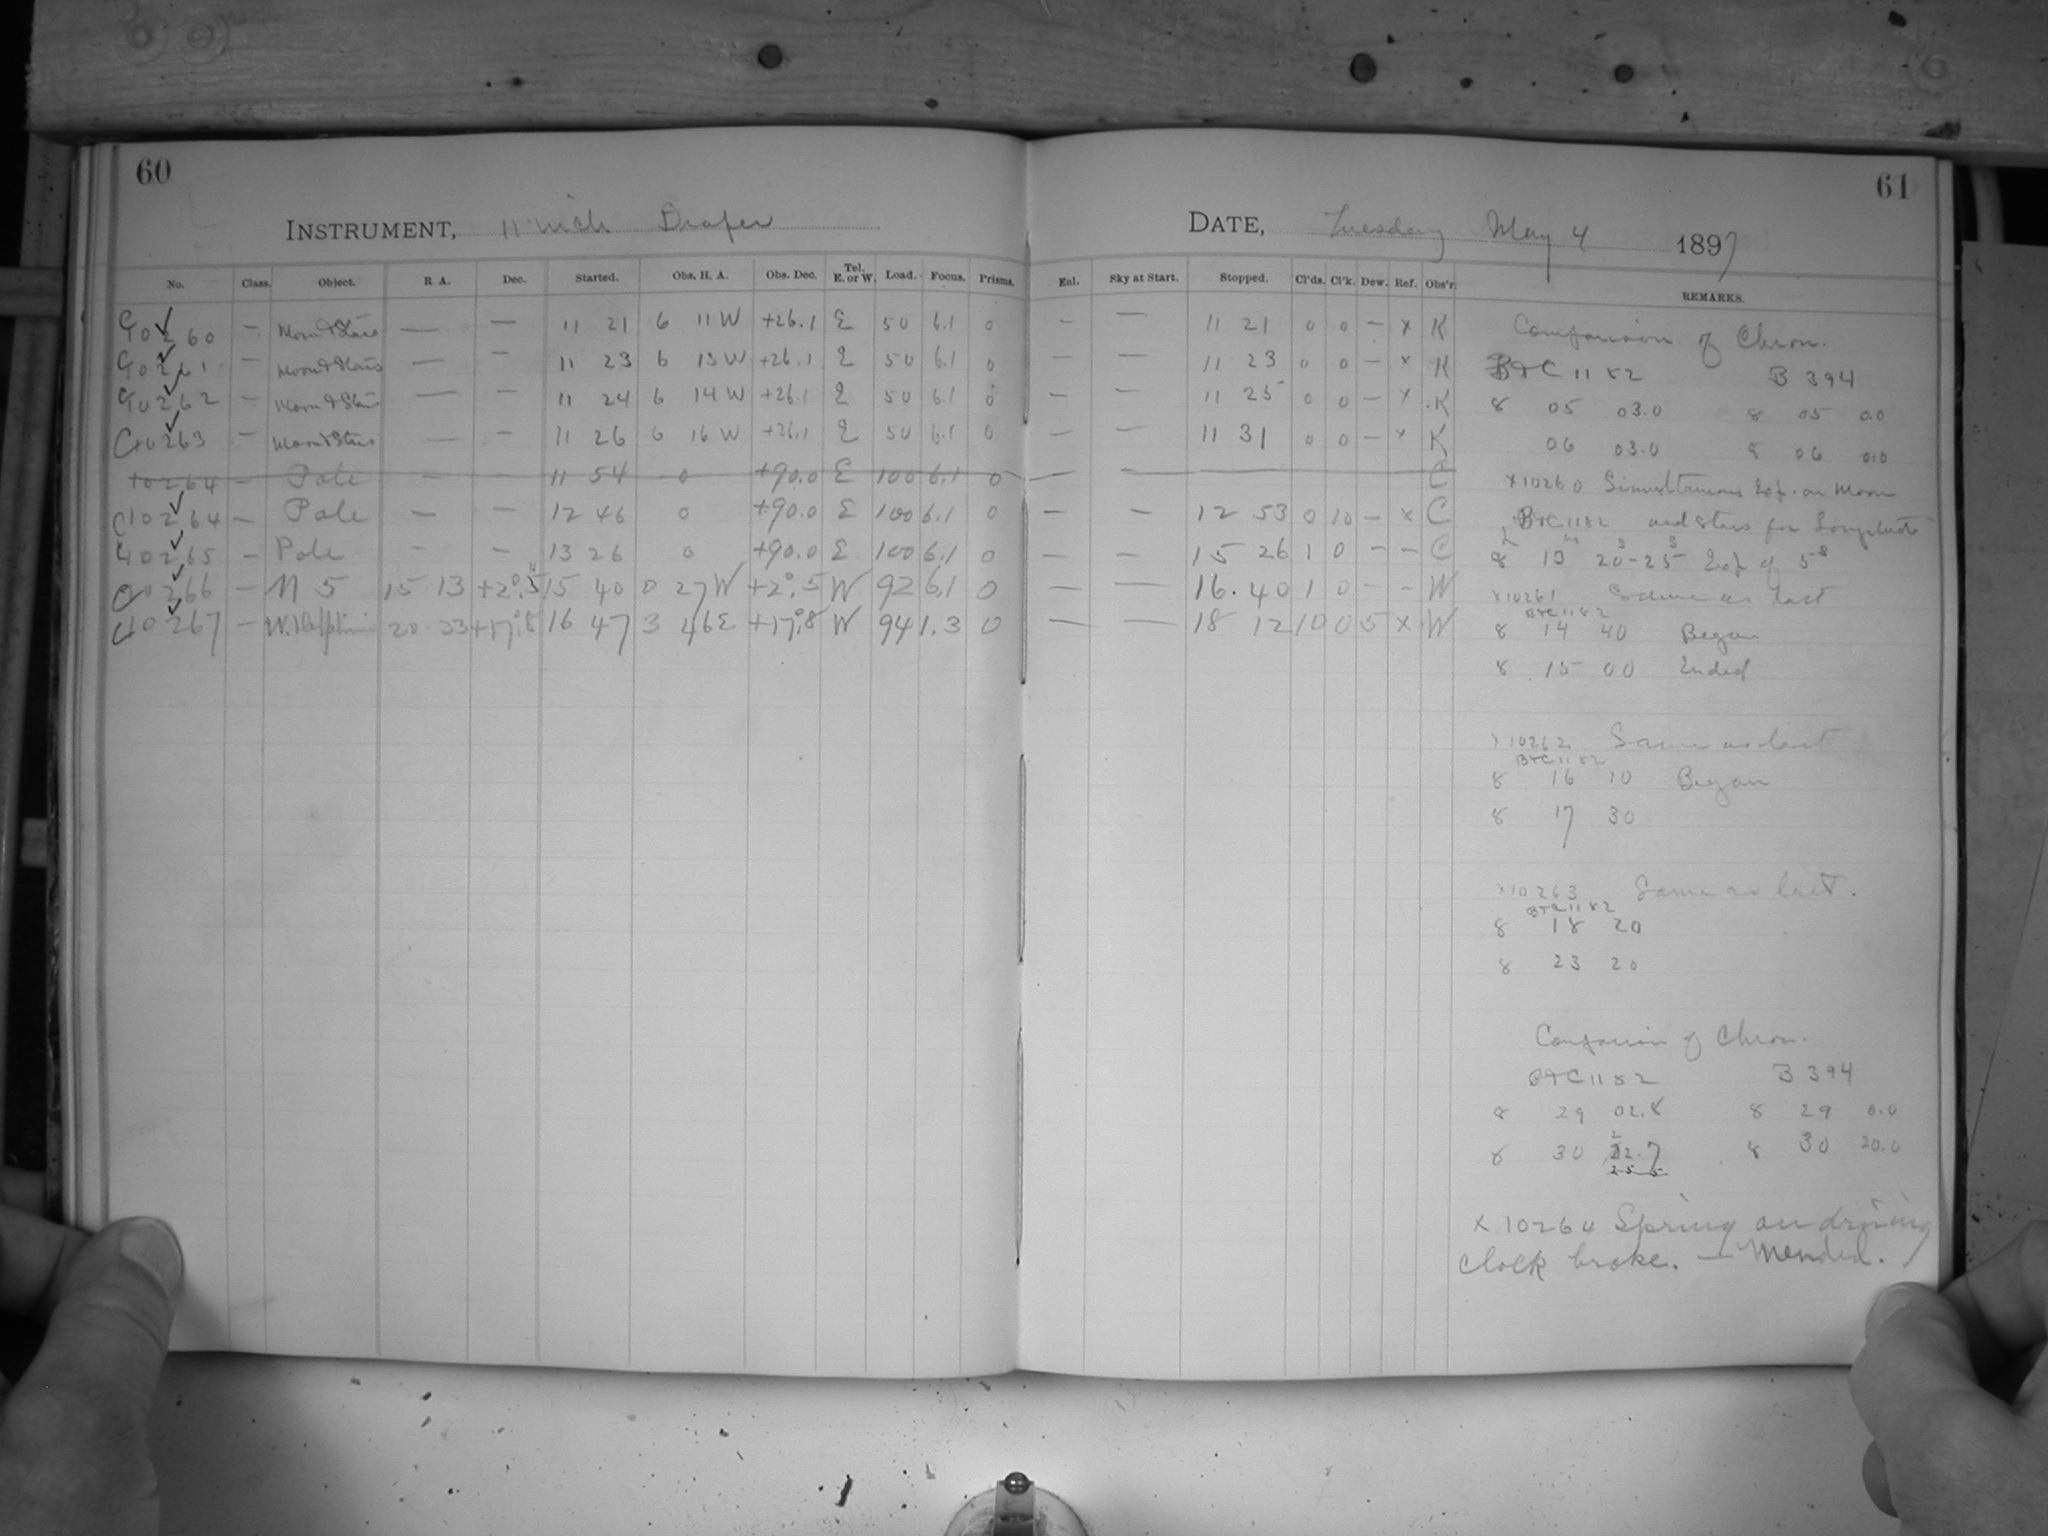 60
INSTRUMENT, 11 inch Draper
No. Class. Object. R A. Dec. Started. Obs. H. A. Obs. Dec. Tel. E. or W. Load. Focus. Prisms.
C10260 — Moon & Stars — — 11 21 6 11 W +26.1 E 50 6.1 0
C10261 — Moon & Stars — — 11 23 6 13 W +26.1 E 50 6.1 0
C10262 — Moon & Stars — — 11 24 6 14 W +26.1 E 50 6.1 0
C10263 — Moon & Stars — — 11 26 6 16 W +26.1 E 50 6.1 0
10264 — Pole — — 11 54 0 +90.0 E 100 6.1 0
C10264 — Pole — — 12 46 0 +90.0 E 100 6.1 0
C10265 — Pole — — 13 26 0 +90.0 E 100 6.1 0
C10266 — M 5 15 13 +2°.5 15 40 0 27 W +2°.5 W 92 6.1 0
C10267 — W. Delphini 20 33 +17°.8 16 47 3 46 E +17°.8 W 94 1.3 0
61
DATE, Tuesday May 4 1897
Enl. Sky at Start. Stopped. Cl'ds. Cl'k. Dew. Ref. Obs'r. REMARKS.
— — 11 21 0 0 — x K
— — 11 23 0 0 — x K
— — 11 25 0 0 — x K
— — 11 31 0 0 — x K
— — C
— — 12 53 0 10 — x C
— — 15 26 1 0 — — C
— — 16.40 1 0 — — W
— — 18 12 10 0 5 x W
Comparison of Chron.
B&C 1182 B 394
8 05 03.0 8 05 0.0
06 03.0 8 06 0.0
x10260 Simultaneous Exp. on Moon
B&C 1182 and stars for Longitude
8h 13m 20s-25s Exp of 5s
x10261 Same as last
B&C 1182
8 14 40 Began
8 15 00 Ended
x10262 Same as last
B&C 1182
8 16 10 Began
8 17 30
x10263 Same as last.
B&C 1182
8 18 20
8 23 20
Comparison of Chron.
B&C 1182 B 394
8 29 02.8 8 29 0.0
8 30 22.7 8 30 20.0
x 10264 Spring on driving
clock broke. — Mended.